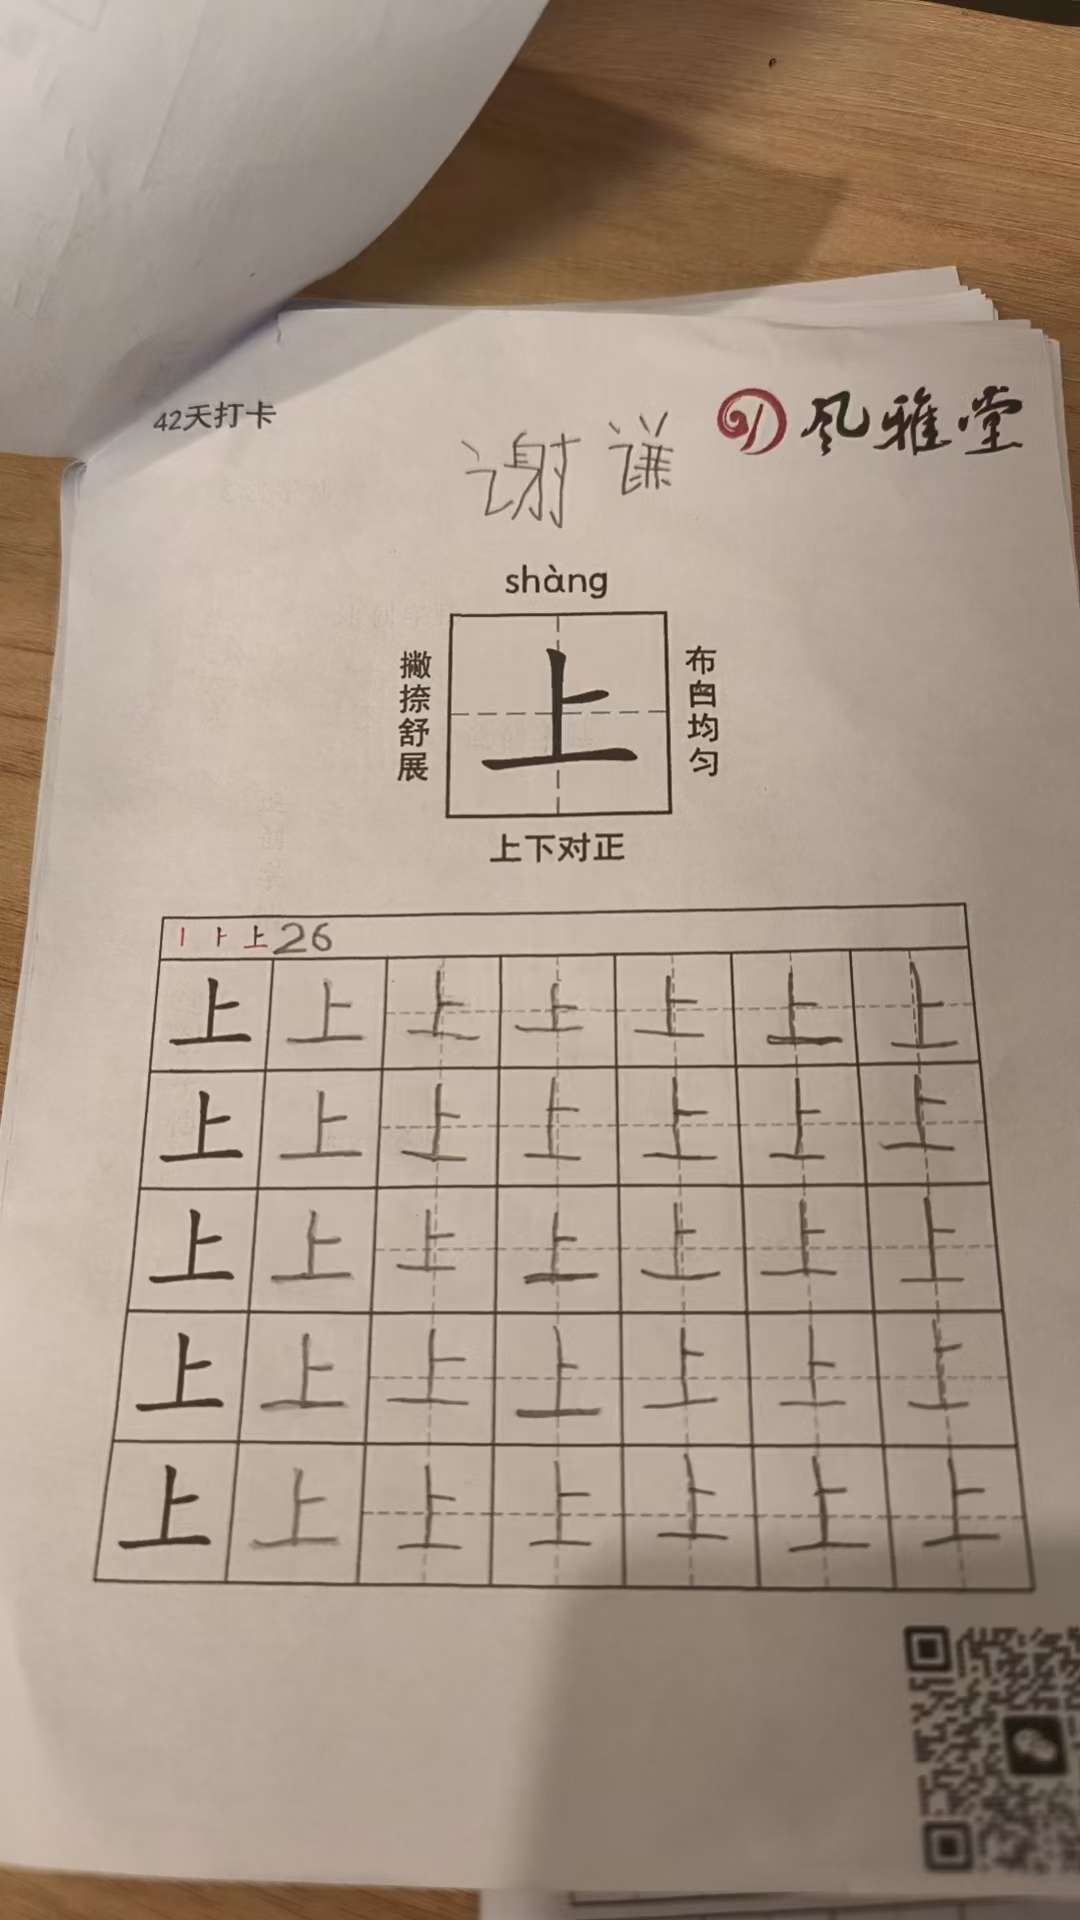 42天打卡
风雅堂
谢谦
shàng
撇捺舒展
上
布白均匀
上下对正
丨 ⺊ 上 26
上 上 上 上 上 上 上
上 上 上 上 上 上 上
上 上 上 上 上 上 上
上 上 上 上 上 上 上
上 上 上 上 上 上 上